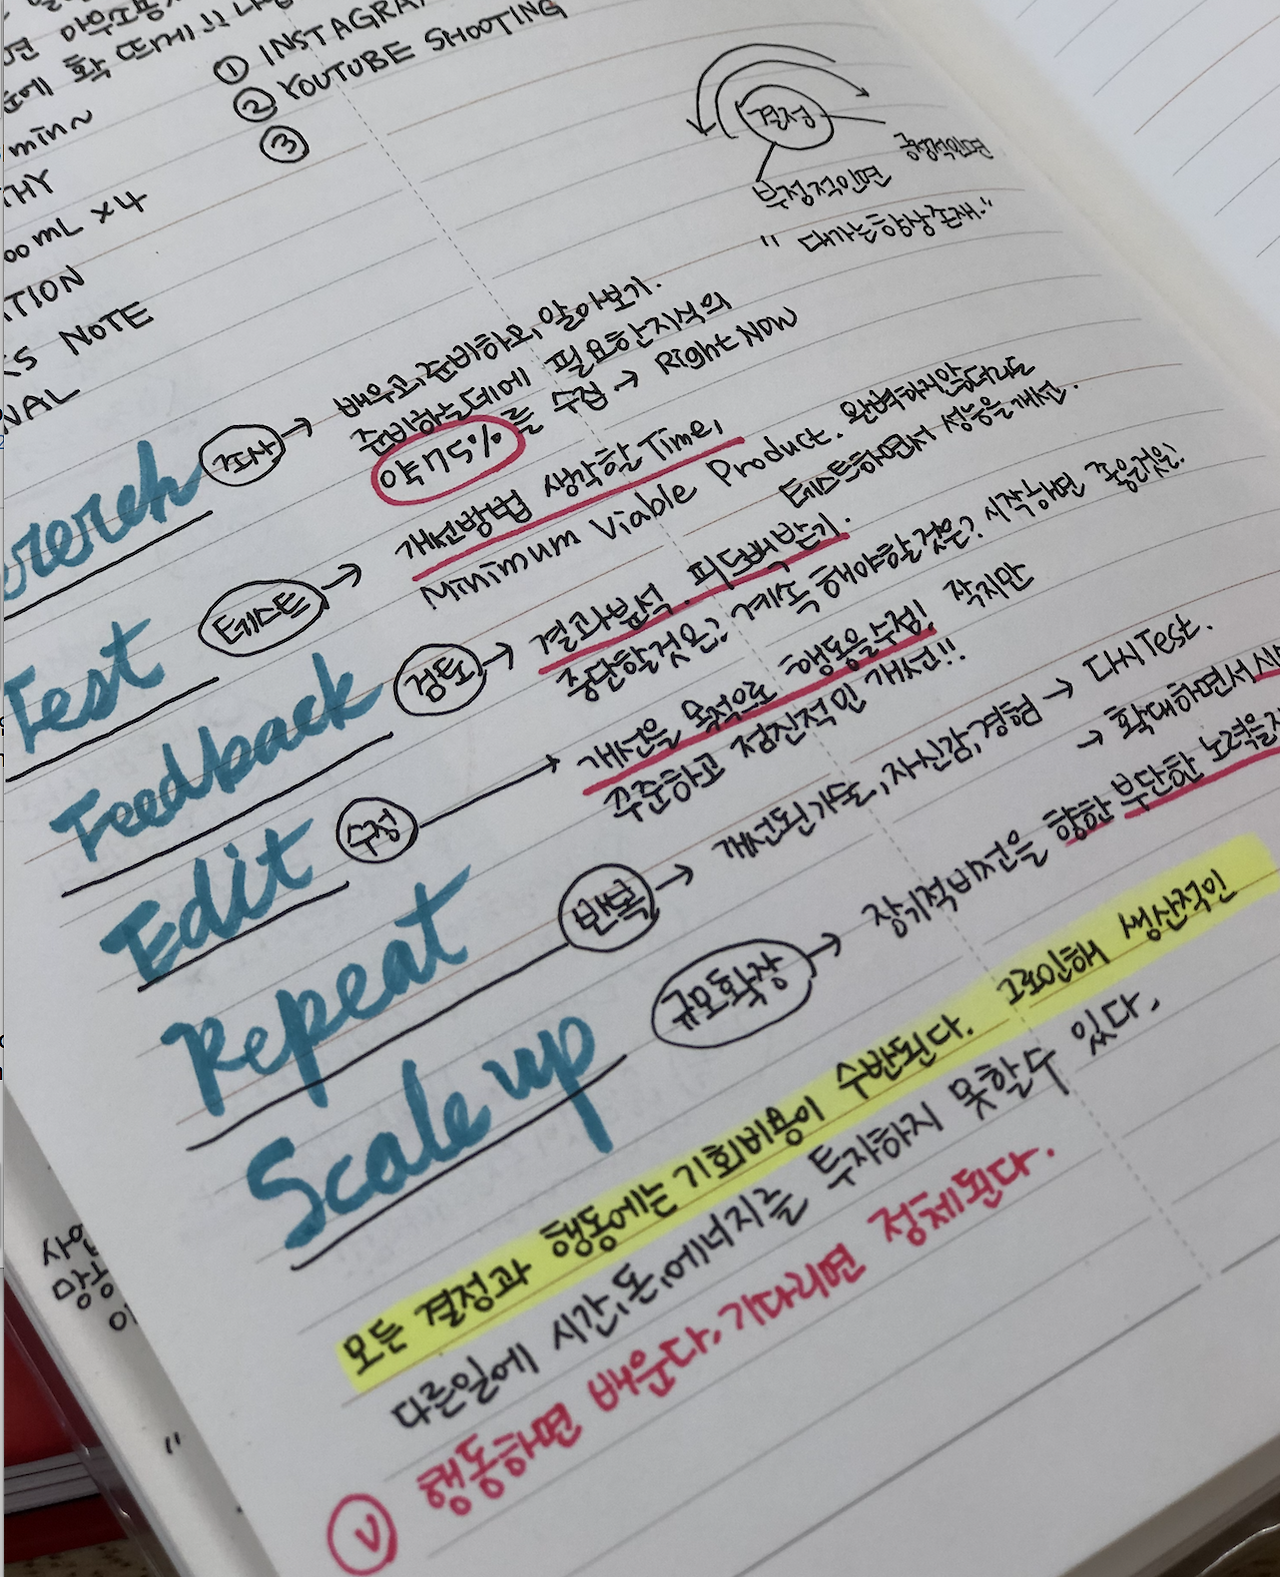 ① INSTAGRA
② YOUTUBE SHOOTING
③
min~
THY
00mL ×4
TION
S NOTE
NAL
결정
긍정적인면
부정적인면
"대가는 항상 존재."
조사 → 배우고, 준비하고, 알아보기.
준비하는데에 필요한 지식의
약 75%를 수집 → Right Now
Test 테스트 → 개선방법 생각할 Time,
Minimum Viable Product. 완벽하지않더라도
테스트하면서 성능을 개선.
Feedback 검토 → 결과분석. 피드백 받기.
중단할것은? 계속 해야할것은? 시작하면 좋은것은?
Edit 수정 → 개선을 목적으로 행동을 수정! 작지만
꾸준하고 점진적인 개선!!
Repeat 반복 → 개선된 기술, 자신감, 경험 → 다시 Test.
→ 확대하면서
Scale up 규모확장 → 장기적 비전을 향한 부단한 노력을
모든 결정과 행동에는 기회비용이 수반된다. 그로인해 생산적인
다른일에 시간, 돈, 에너지를 투자하지 못할수 있다.
Ⓥ 행동하면 배운다. 기다리면 정체된다.